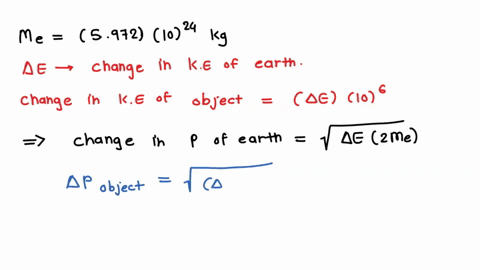 Me = (5.972) (10)^24 kg
ΔE → change in K.E of earth.
change in K.E of object = (ΔE) (10)^6
=> change in P of earth = √ΔE (2Me)
ΔP object = √(Δ